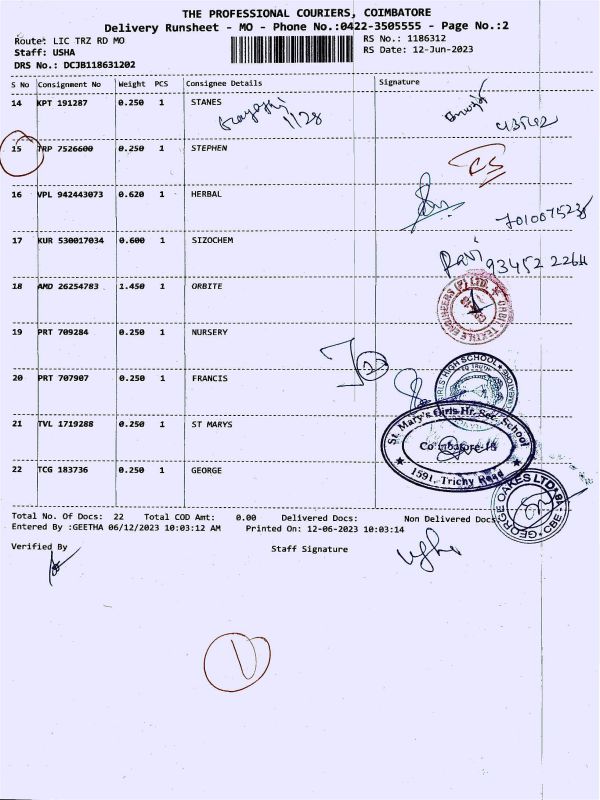 THE PROFESSIONAL COURIERS, COIMBATORE
Delivery Runsheet - MO - Phone No.:0422-3505555 - Page No.:2
Route: LIC TRZ RD MO
RS No.: 1186312
Staff: USHA
RS Date: 12-Jun-2023
DRS No.: DCJB118631202
S No Consignment No Weight PCS Consignee Details Signature
14 KPT 191287 0.250 1 STANES
1128
15 TRP 7526600 0.250 1 STEPHEN
CS
16 VPL 942443073 0.620 1 HERBAL
17 KUR 530017034 0.600 1 SIZOCHEM
Ravi
18 AMD 26254783 1.450 1 ORBITE
ORBIT TEXTILE ENGINEERS (P) LTD.
19 PRT 709284 0.250 1 NURSERY
20 PRT 707907 0.250 1 FRANCIS
GIRLS HIGH SCHOOL
21 TVL 1719288 0.250 1 ST MARYS
St. Mary's Girls Hr. Sec. School
Coimbatore-18
1591, Trichy Road
22 TCG 183736 0.250 1 GEORGE
GEORGE OAKES LTD
CBE
Total No. Of Docs: 22 Total COD Amt: 0.00 Delivered Docs: Non Delivered Docs:
Entered By :GEETHA 06/12/2023 10:03:12 AM Printed On: 12-06-2023 10:03:14
Verified By Staff Signature